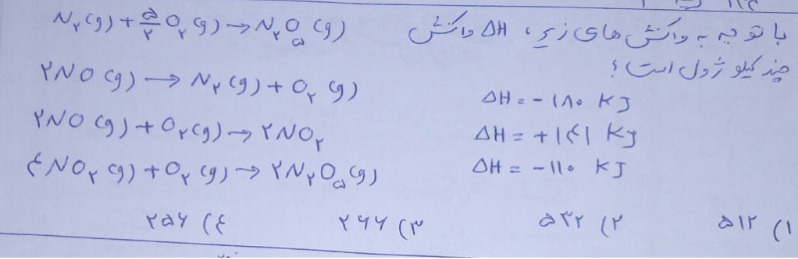 با توجه به واکنش های زیر، ΔH واکنش N₂(g) + ۵/۲ O₂(g) → N₂O₅(g)
چند کیلو ژول است؟
۲NO(g) → N₂(g) + O₂(g) ΔH = -۱۸۰ KJ
۲NO(g) + O₂(g) → ۲NO₂ ΔH = +۱۴۱ KJ
۴NO₂(g) + O₂(g) → ۲N₂O₅(g) ΔH = -۱۱۰ KJ
۱) ۵۱۲ ۲) ۵۳۲ ۳) ۲۶۶ ۴) ۲۵۶